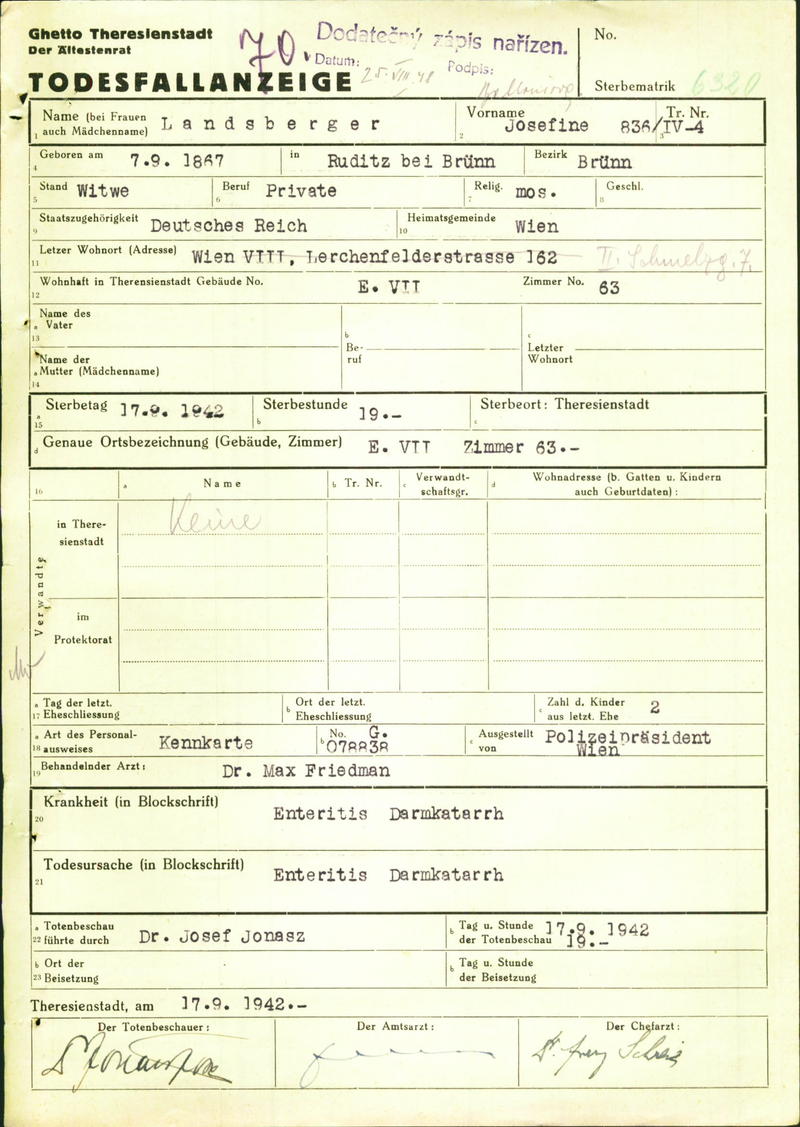 Ghetto Theresienstadt
Der Ältestenrat
TODESFALLANZEIGE
70
Dodatečný zápis nařízen.
Datum: 25. VIII. 48 Podpis:
No.
Sterbematrik 6320
Name (bei Frauen auch Mädchenname) Landsberger
1
Vorname Josefine
2
Tr. Nr. 836/IV-4
3
Geboren am 7.9. 1867
4
in Ruditz bei Brünn
Bezirk Brünn
Stand Witwe
5
Beruf Private
6
Relig. mos.
7
Geschl.
8
Staatszugehörigkeit Deutsches Reich
9
Heimatsgemeinde Wien
10
Letzer Wohnort (Adresse) Wien VIII, Lerchenfelderstrasse 162 II.
11
Wohnhaft in Theresienstadt Gebäude No. E. VII
12
Zimmer No. 63
Name des
a Vater
13
b
Be-
ruf
c
Letzter
Wohnort
Name der
a Mutter (Mädchenname)
14
Sterbetag 17.9. 1942
a
15
Sterbestunde 19.-
b
Sterbeort: Theresienstadt
c
d Genaue Ortsbezeichnung (Gebäude, Zimmer) E. VII Zimmer 63.-
16
a Name
b Tr. Nr.
c Verwandt-
schaftsgr.
d Wohnadresse (b. Gatten u. Kindern
auch Geburtdaten) :
Verwandte
in There-
sienstadt
Keine
im
Protektorat
a Tag der letzt.
17 Eheschliessung
b Ort der letzt.
Eheschliessung
c Zahl d. Kinder
aus letzt. Ehe 2
a Art des Personal-
18 ausweises Kennkarte
b No. G.
078838
c Ausgestellt
von Polizeipräsident
Wien
19 Behandelnder Arzt: Dr. Max Friedman
Krankheit (in Blockschrift) Enteritis Darmkatarrh
20
Todesursache (in Blockschrift) Enteritis Darmkatarrh
21
a Totenbeschau
22 führte durch Dr. Josef Jonasz
b Tag u. Stunde
der Totenbeschau 17.9. 1942
19.-
b Ort der
23 Beisetzung
b Tag u. Stunde
der Beisetzung
Theresienstadt, am 17.9. 1942.-
Der Totenbeschauer:
Der Amtsarzt:
Der Chefarzt: